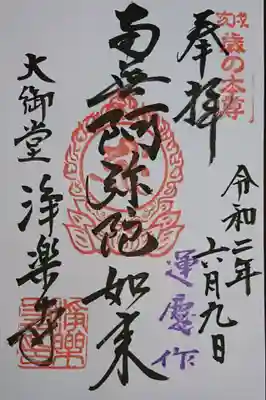 戌亥歳の本尊
奉拝
令和二年
六月九日
南無阿弥陀如来
運慶作
大御堂
浄楽寺